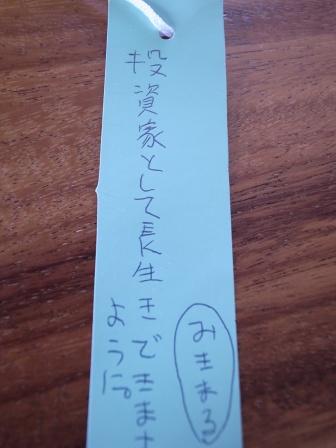 投資家として長生きできます
ように。
みきまる